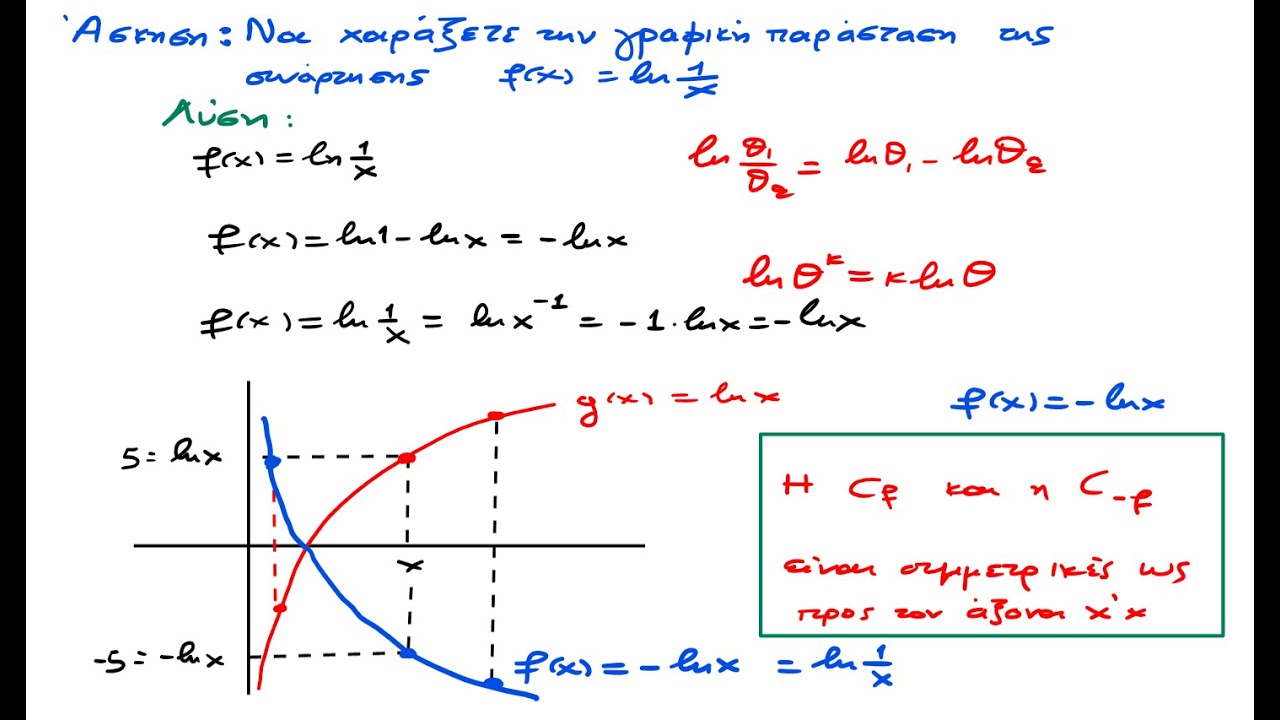 Άσκηση: Να χαράξετε την γραφική παράσταση της
συνάρτησης f(x) = ln 1/x
Λύση:
f(x) = ln 1/x
ln θ₁/θ₂ = lnθ₁ - lnθ₂
f(x) = ln1 - lnx = -lnx
lnθᵏ = κlnθ
f(x) = ln 1/x = lnx⁻¹ = -1·lnx = -lnx
g(x) = lnx
f(x) = -lnx
5 = lnx
Η Cf και η C-f
είναι συμμετρικές ως
προς τον άξονα x'x
x
-5 = -lnx
f(x) = -lnx = ln 1/x